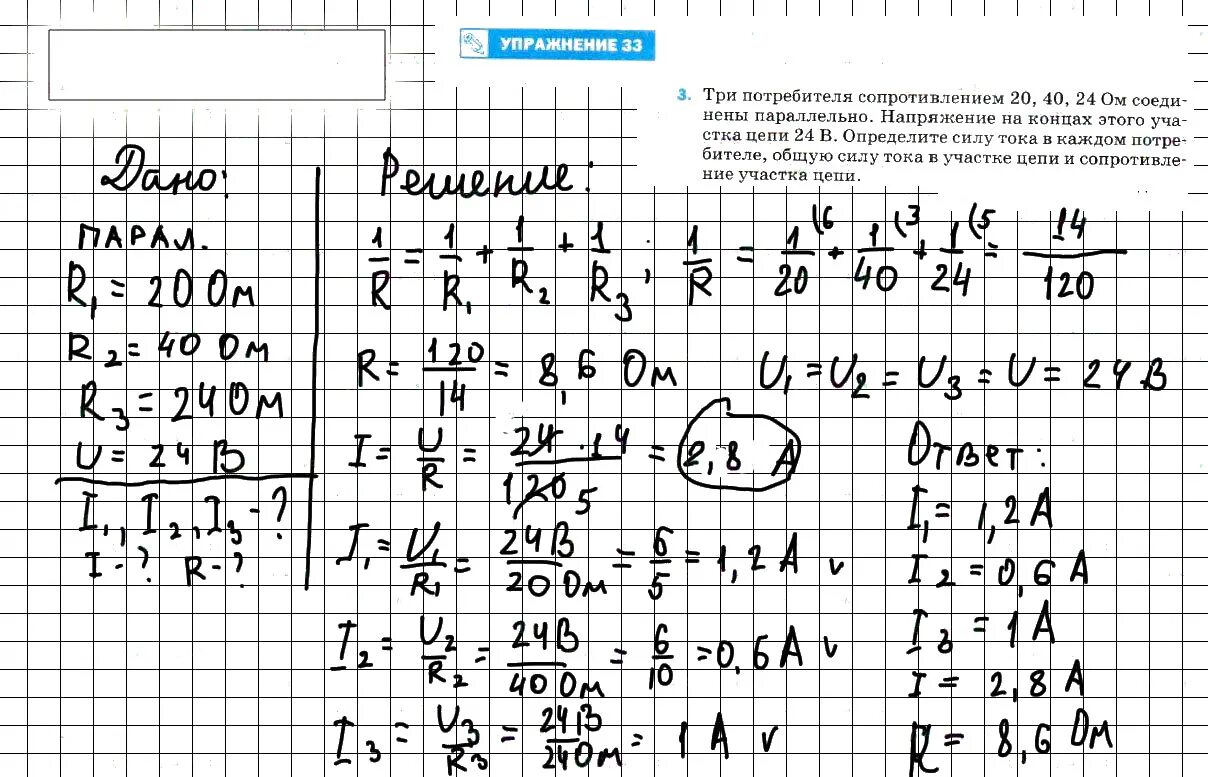 УПРАЖНЕНИЕ 33
3. Три потребителя сопротивлением 20, 40, 24 Ом соеди-
нены параллельно. Напряжение на концах этого уча-
стка цепи 24 В. Определите силу тока в каждом потре-
бителе, общую силу тока в участке цепи и сопротивле-
ние участка цепи.
Дано:
ПАРАЛ.
R₁ = 20 Ом
R₂ = 40 Ом
R₃ = 24 Ом
U = 24 В
I₁, I₂, I₃ - ?
I - ? R - ?
Решение:
1/R = 1/R₁ + 1/R₂ + 1/R₃; 1/R = 1/20 (6 + 1/40 (3 + 1/24 (5 = 14/120
R = 120/14 = 8,6 Ом U₁ = U₂ = U₃ = U = 24 В
I = U/R = 24 · 14/120 5 = 2,8 А
I₁ = U₁/R₁ = 24В/20 Ом = 6/5 = 1,2 А v
I₂ = U₂/R₂ = 24В/40 Ом = 6/10 = 0,6 А v
I₃ = U₃/R₃ = 24В/24 Ом = 1 А v
Ответ:
I₁ = 1,2 А
I₂ = 0,6 А
I₃ = 1 А
I = 2,8 А
R = 8,6 Ом